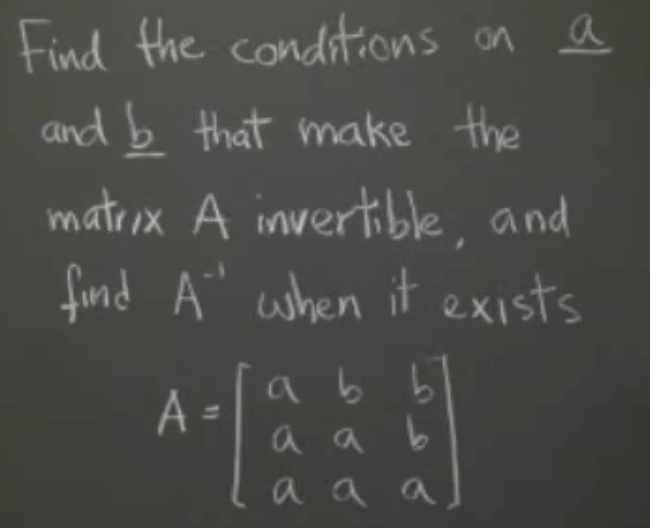 Find the conditions on a
and b that make the
matrix A invertible, and
find A⁻¹ when it exists
A = [a b b
a a b
a a a]